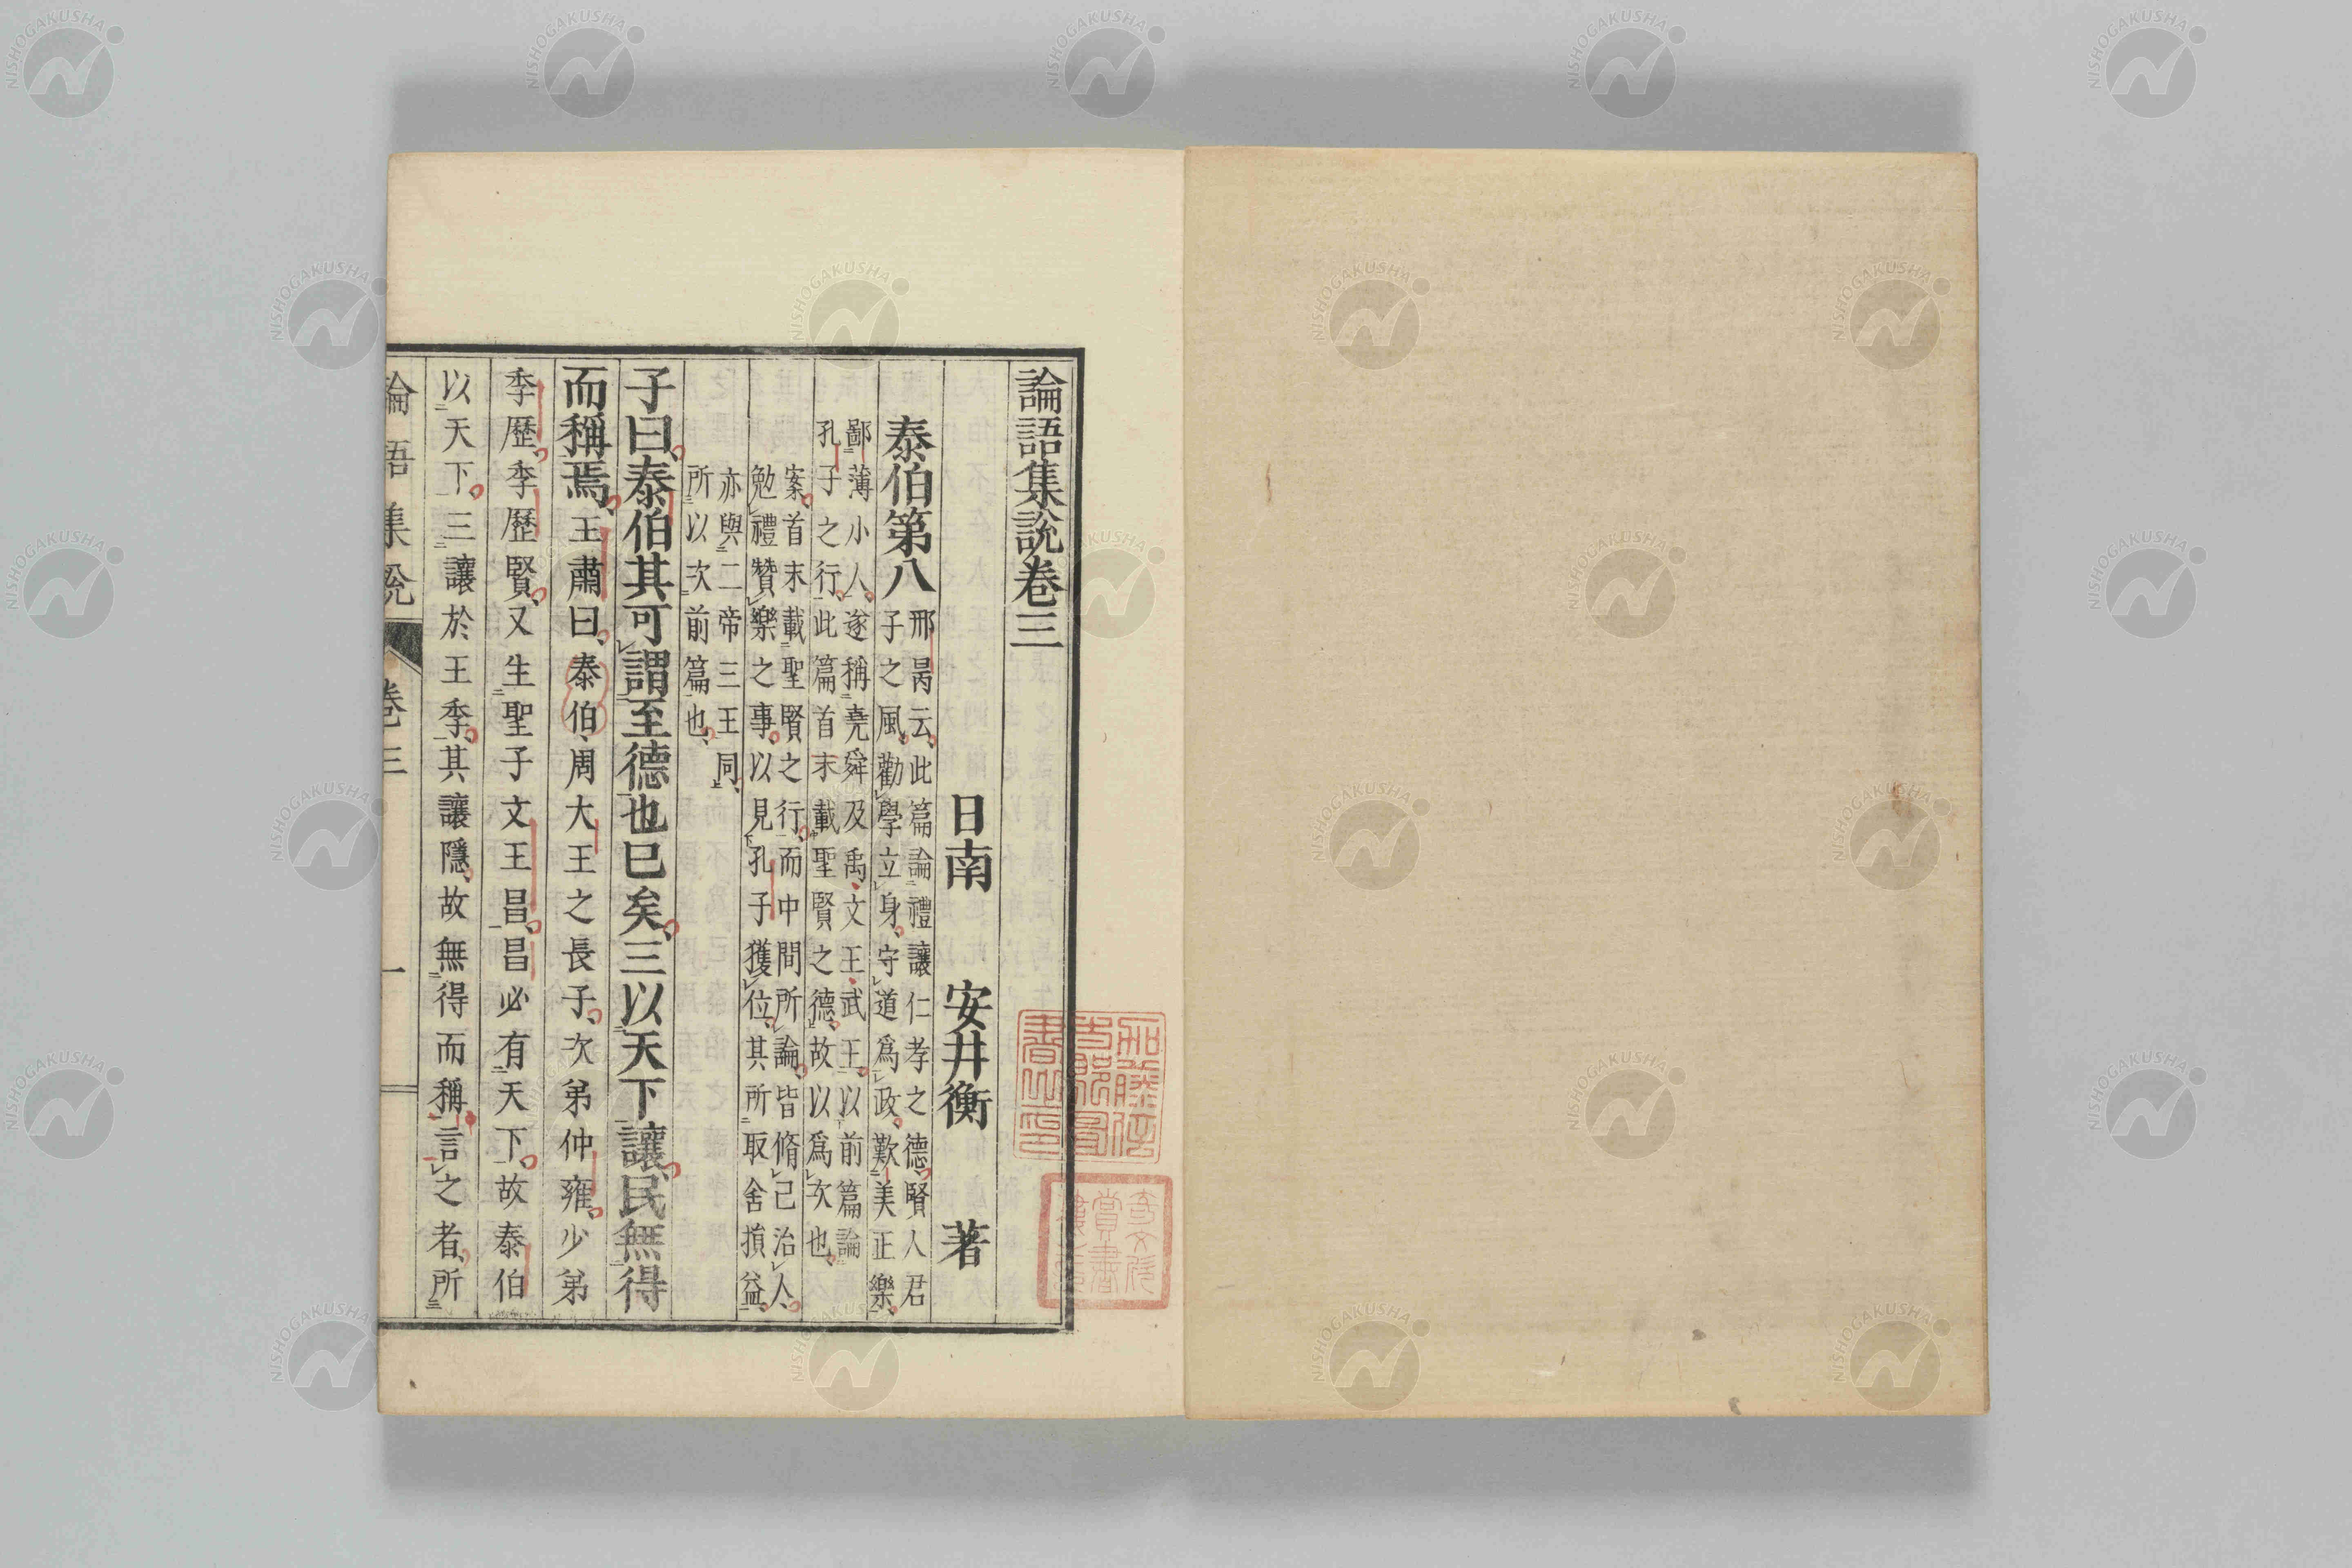 論語集說卷三
日南 安井衡 著
泰伯第八
邢昺云、此篇論禮讓仁孝之德、賢人君
子之風、勸學立身、守道爲政、歎美正樂、
鄙薄小人、遂稱堯舜及禹、文王、武王、以前篇論
孔子之行、此篇首末載聖賢之德、故以爲次也、
案、首末載聖賢之行、而中間所論、皆脩己治人、
勉禮贊樂之事、以見孔子獲位、其所取舍損益、
亦與二帝三王同、
所以次前篇也、
子曰、泰伯其可謂至德也已矣、三以天下讓、民無得
而稱焉、王肅曰、泰伯、周大王之長子、次弟仲雍、少弟
季歷、季歷賢、又生聖子文王昌、昌必有天下、故泰伯
以天下、三讓於王季、其讓隱、故無得而稱言之者、所
論語集說 卷三 一
NISHOGAKUSHA